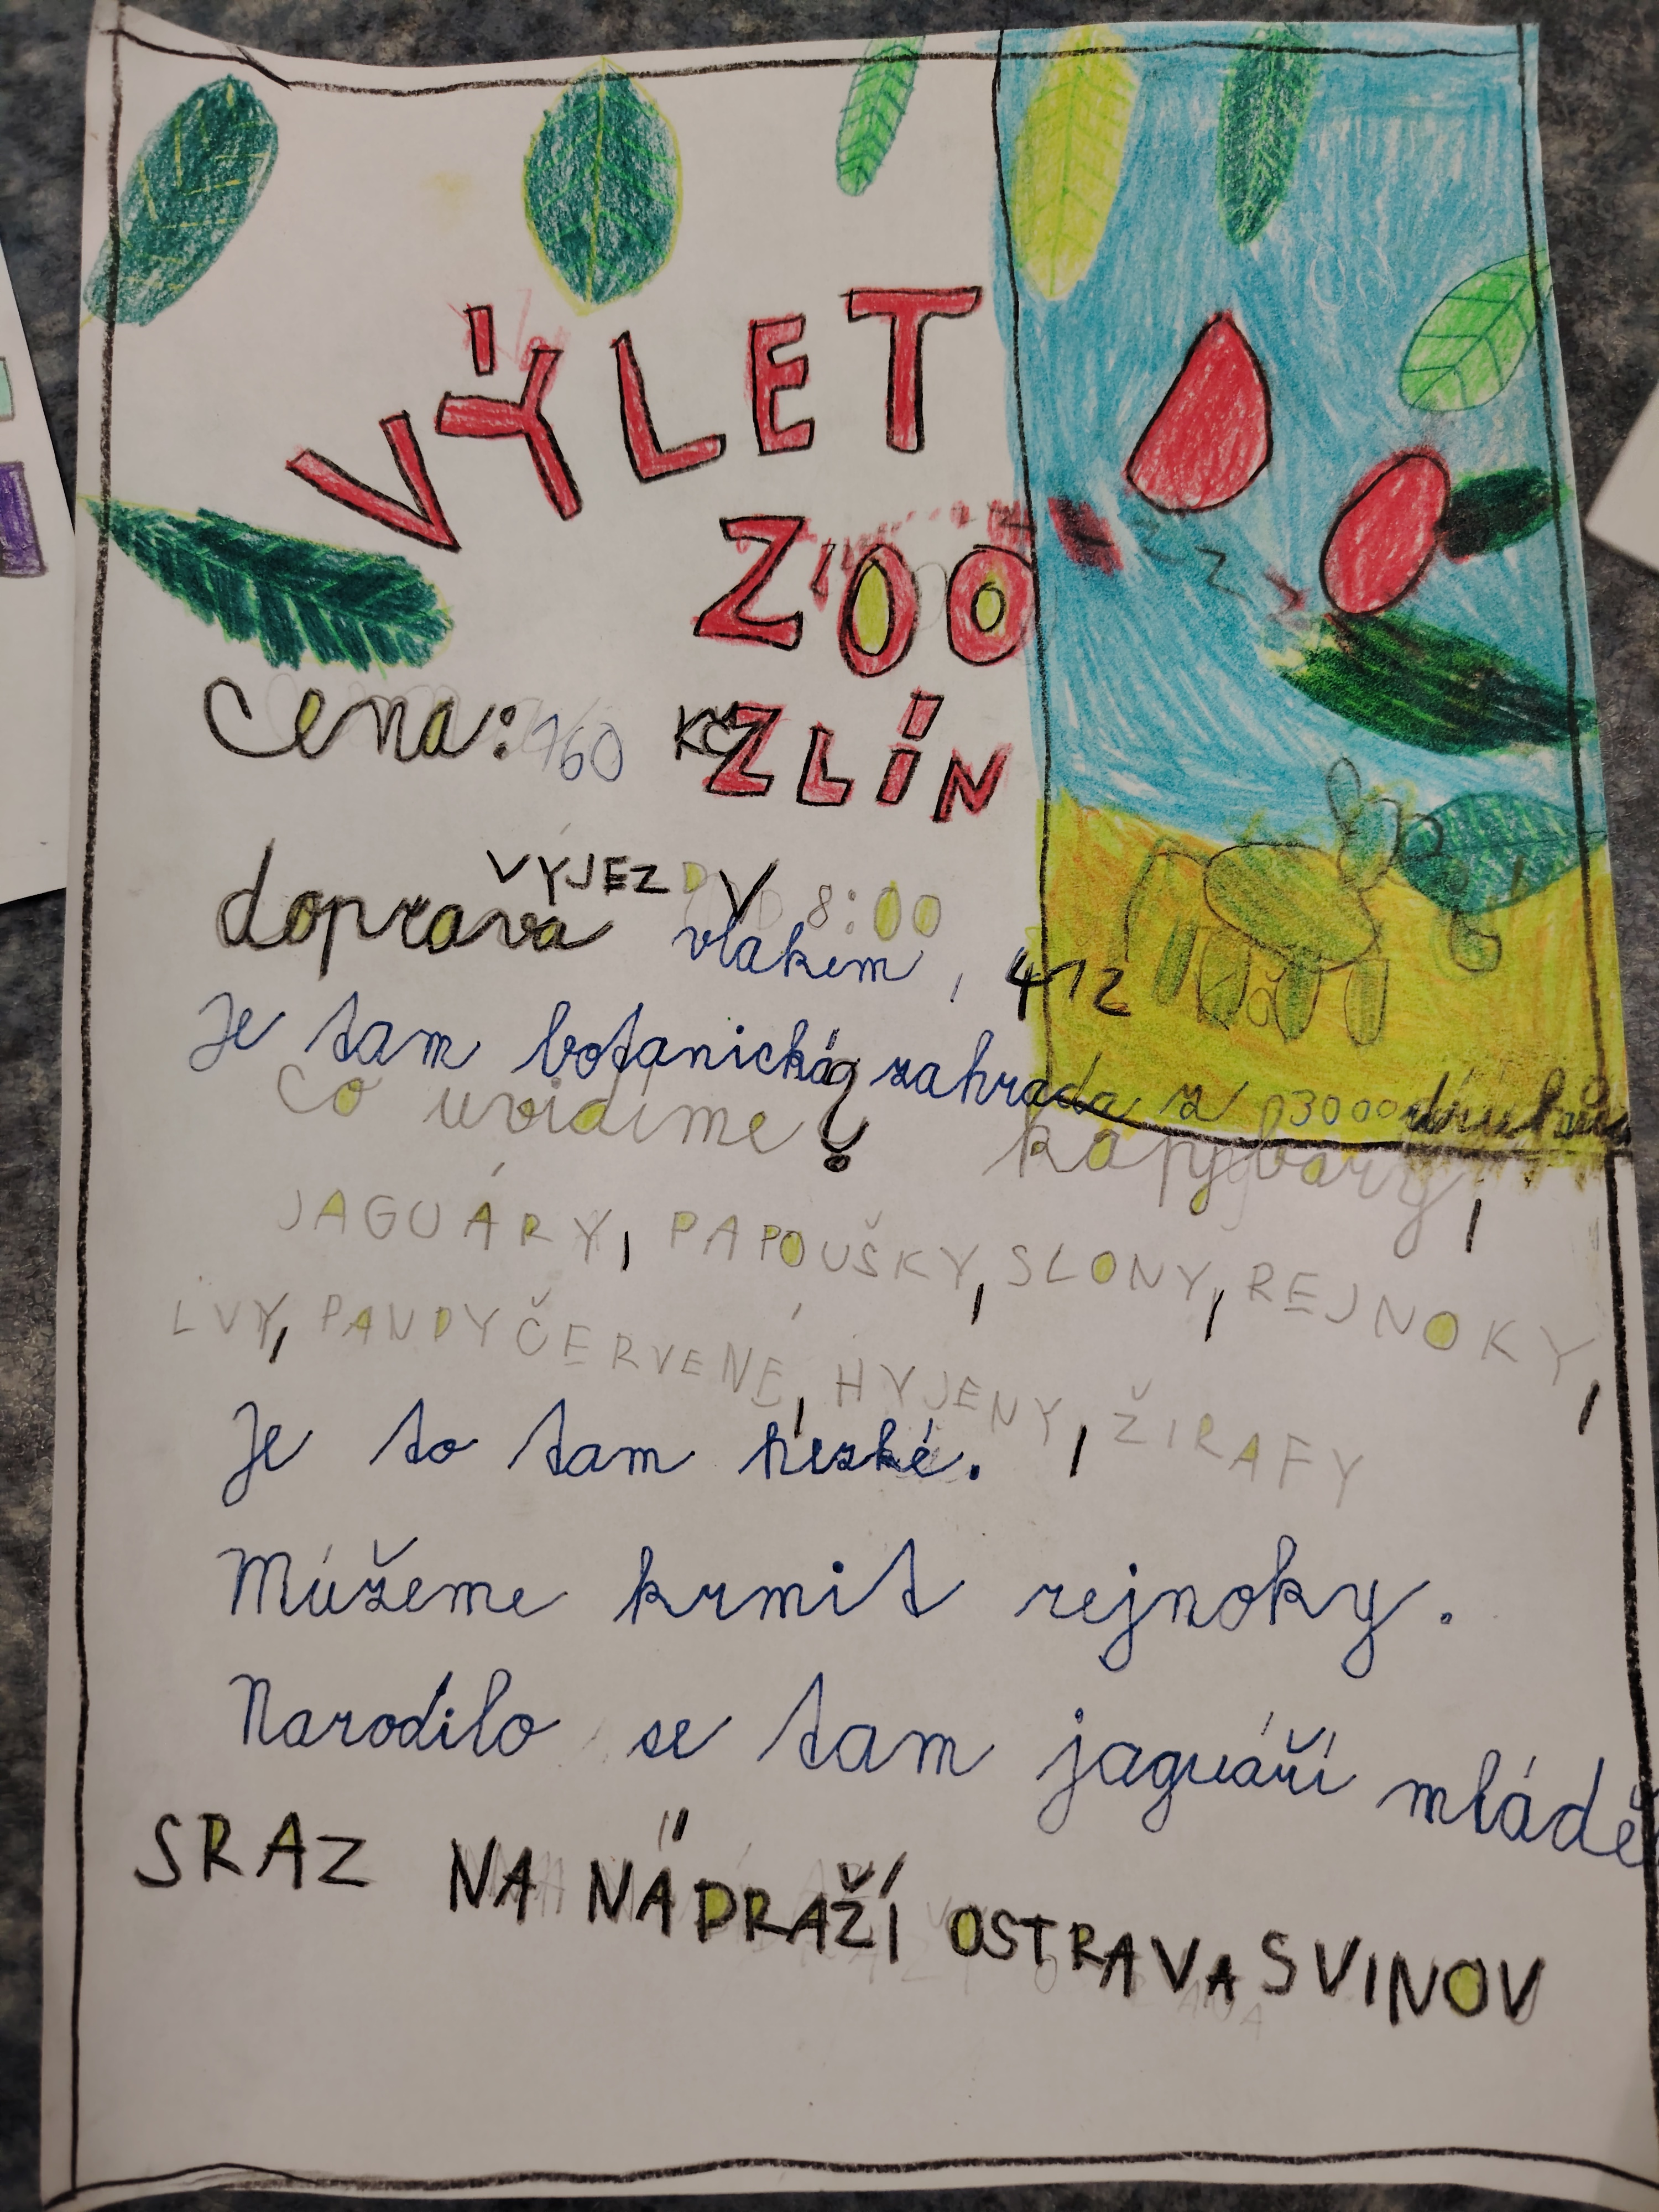 VÝLET
ZOO
ZLÍN
cena: 160 KČ
VÝJEZD V 8:00
doprava vlakem, 412
Je tam botanická zahrada z 3000 druhů
co uvidíme? kapybary,
JAGUÁRY, PAPOUŠKY, SLONY, REJNOKY,
LVY, PANDY ČERVENÉ, HYJENY, ŽIRAFY
Je to tam hezké.
Múžeme krmit rejnoky.
Narodilo se tam jaguáří mládě
SRAZ NA NÁDRAŽÍ OSTRAVA SVINOV